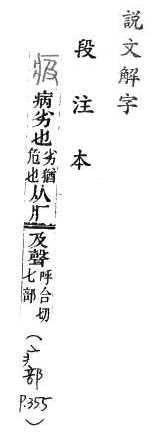 說文解字
段注本
疲 病劣也 劣猶危也 从疒 及聲 呼合切 七部 (疒部 P.355)